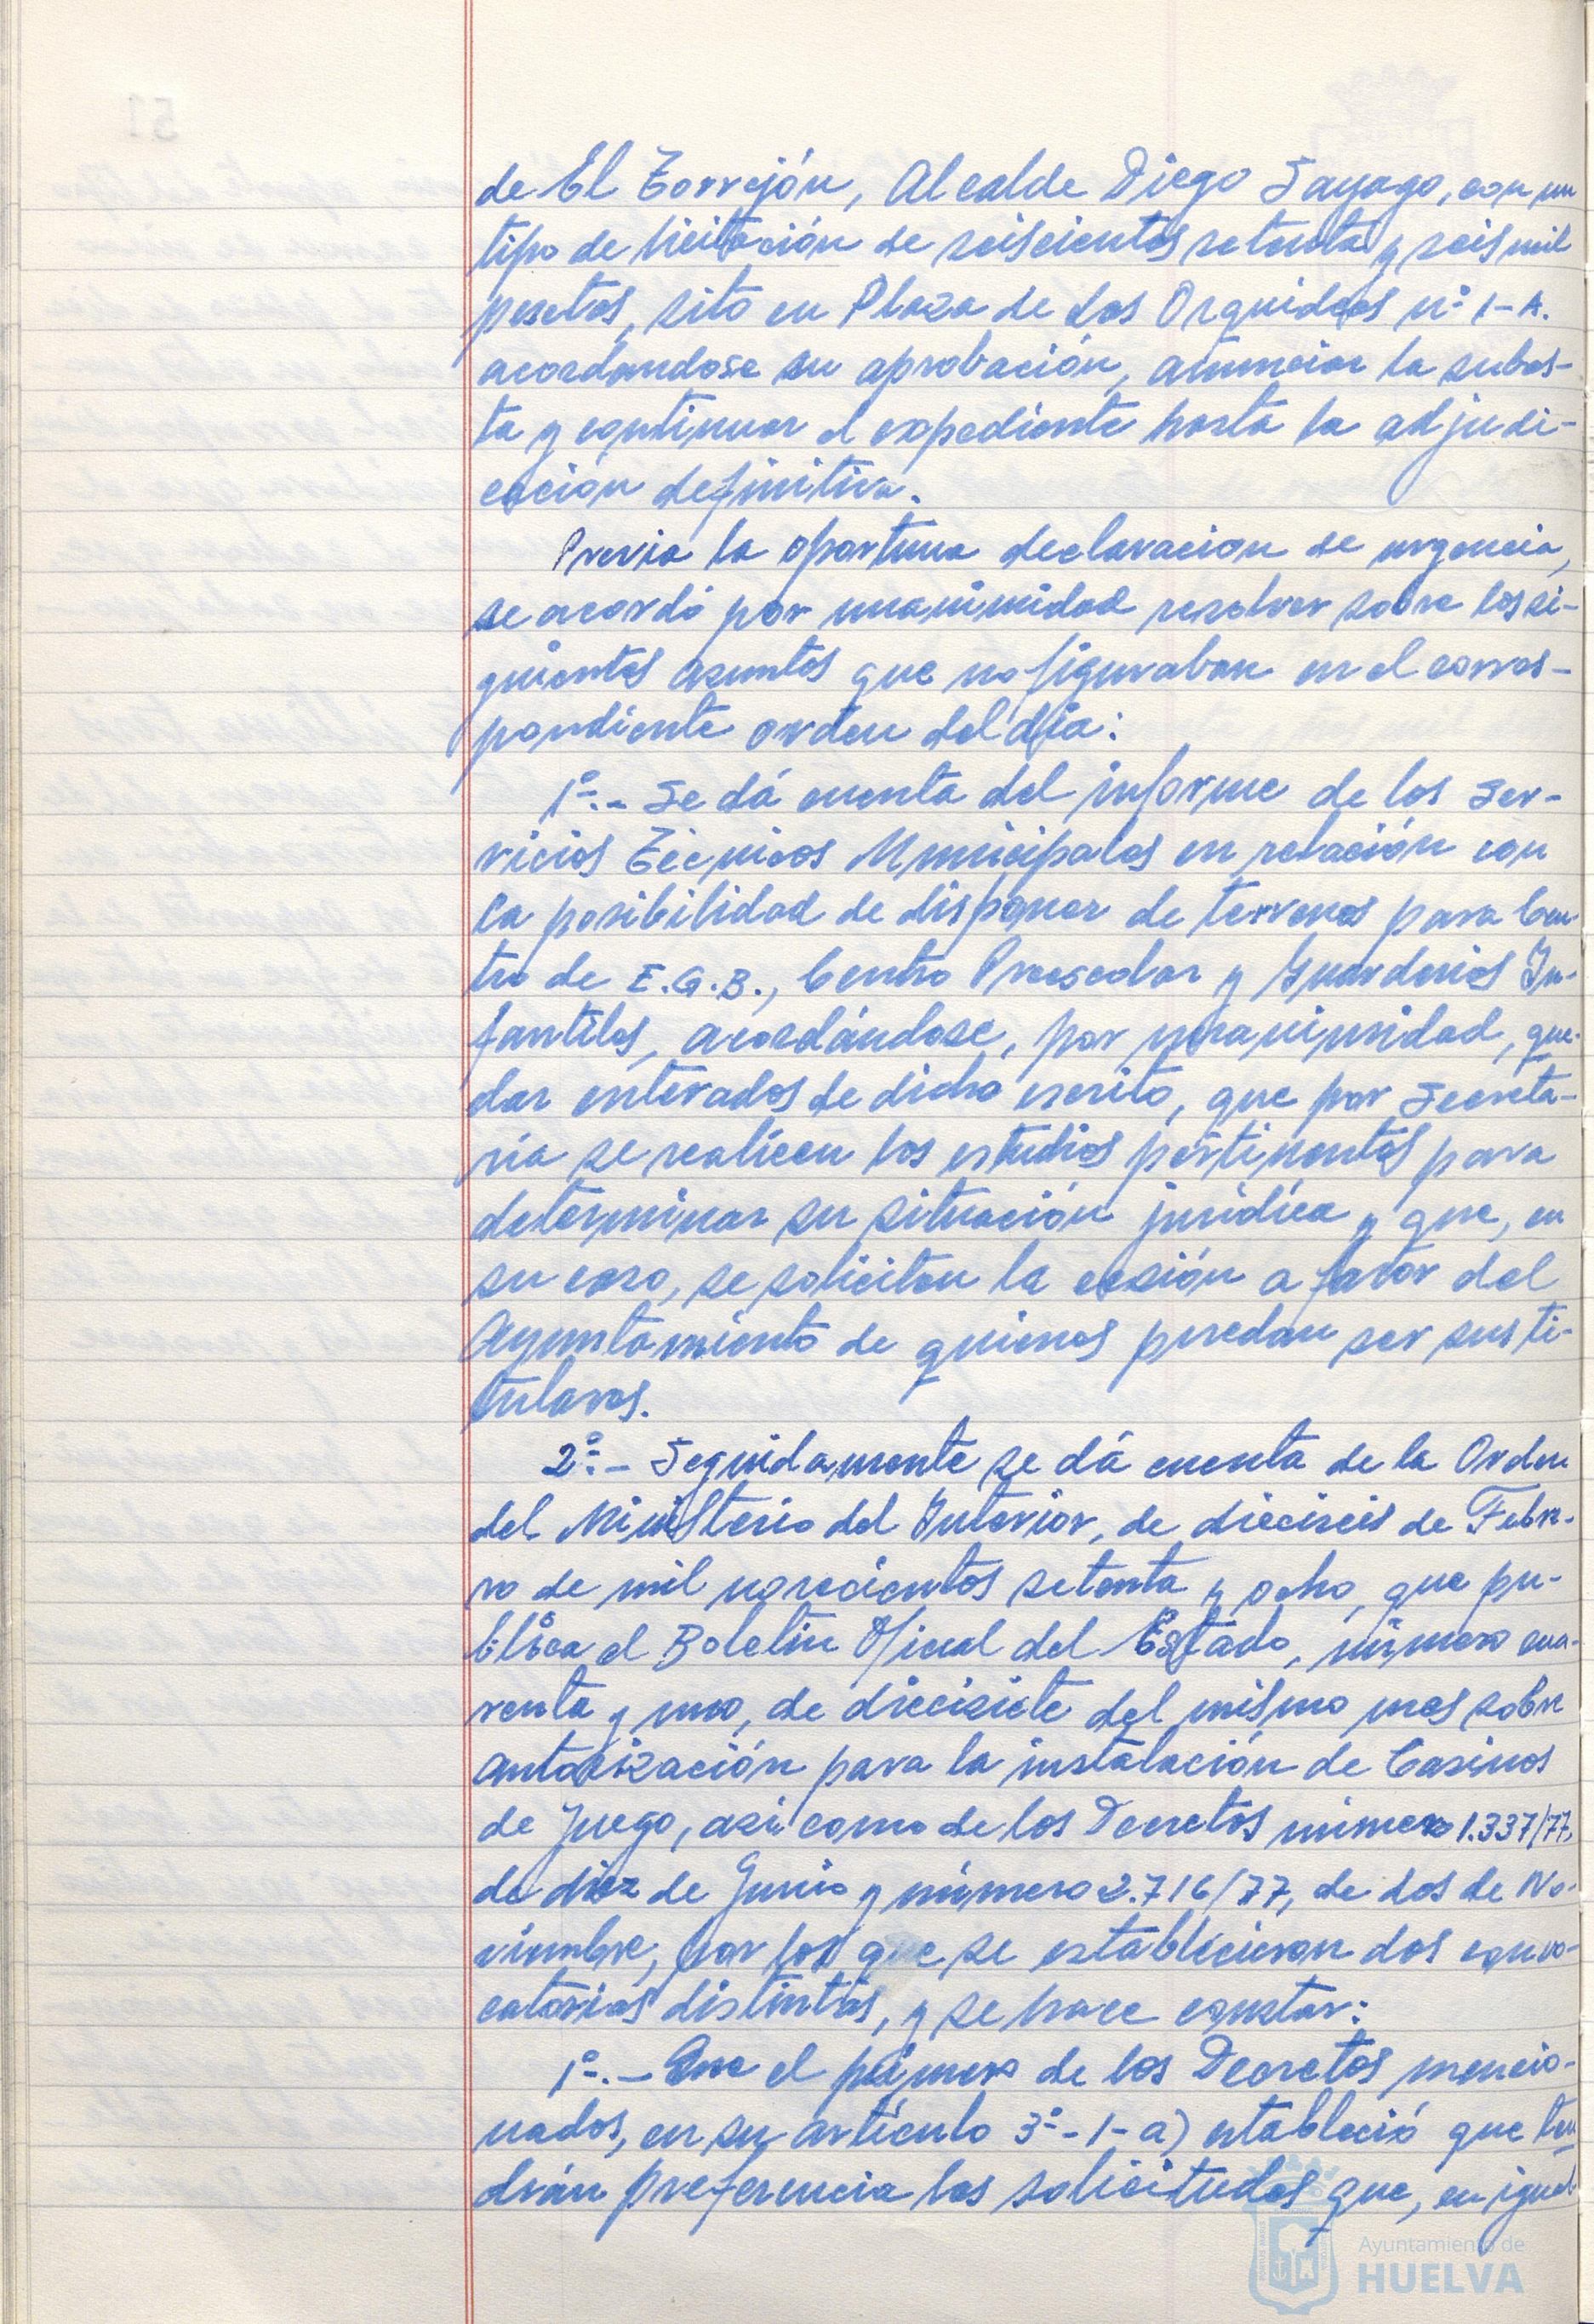 de El Torrejón, Alcalde Diego Sayago, con un
tipo de licitación de seiscientas setenta y seis mil
pesetas, sito en Plaza de Las Orquideas nº 1-A.
acordandose su aprobación, anunciar la subas-
ta y continuar el expediente hasta la adjudi-
cación definitiva.
Previa la oportuna declaracion de urgencia,
se acordó por unanimidad resolver sobre los si-
guientes asuntos que no figuraban en el corres-
pondiente orden del dia:
1º.- Se dá cuenta del informe de los Ser-
vicios Técnicos Municipales en relación con
la posibilidad de disponer de terrenos para Cen-
tro de E.G.B., Centro Preescolar y Guarderias In-
fantiles, acordándose, por unanimidad, que-
dar enterados de dicho escrito, que por Secreta-
ría se realicen los estudios pertinentes para
determinar su situación jurídica y que, en
su caso, se soliciten la cesión a favor del
Ayuntamiento de quienes puedan ser sus ti-
tulares.
2º.- Seguidamente se dá cuenta de la Orden
del Ministerio del Interior, de dieciseis de Febre-
ro de mil novecientos setenta y ocho, que pu-
blica el Boletin Oficial del Estado, número cua-
renta y uno, de diecisiete del mismo mes sobre
autorización para la instalación de Casinos
de Juego, asi como de los Decretos número 1.337/77,
de diez de Junio y número 2.716/77, de dos de No-
viembre, por los que se establecieron dos convo-
catorias distintas, y se hace constar:
1º.- Que el primero de los Decretos mencio-
nados, en su artículo 3º-1-a) estableció que ten
drán preferencia las solicitudes que, en igual
Ayuntamiento de
HUELVA
51